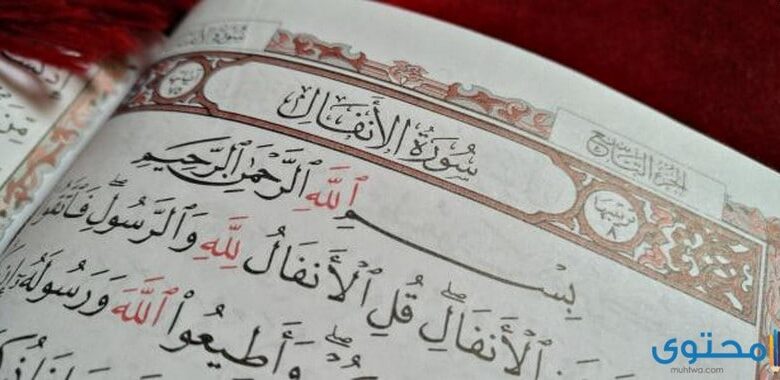 سُورَةُ الأَنفَالِ
الجزء التاسع
ترتيبها
٨
سُورَةُ الأَنفَالِ
بِسْمِ ٱللَّهِ ٱلرَّحْمَٰنِ ٱلرَّحِيمِ
ٱلْأَنفَالِۖ قُلِ ٱلْأَنفَالُ لِلَّهِ وَٱلرَّسُولِۖ فَٱتَّقُوا
وَأَطِيعُوا۟ ٱللَّهَ وَرَسُولَهُۥٓ إِن
محتوى
muhtwa.com